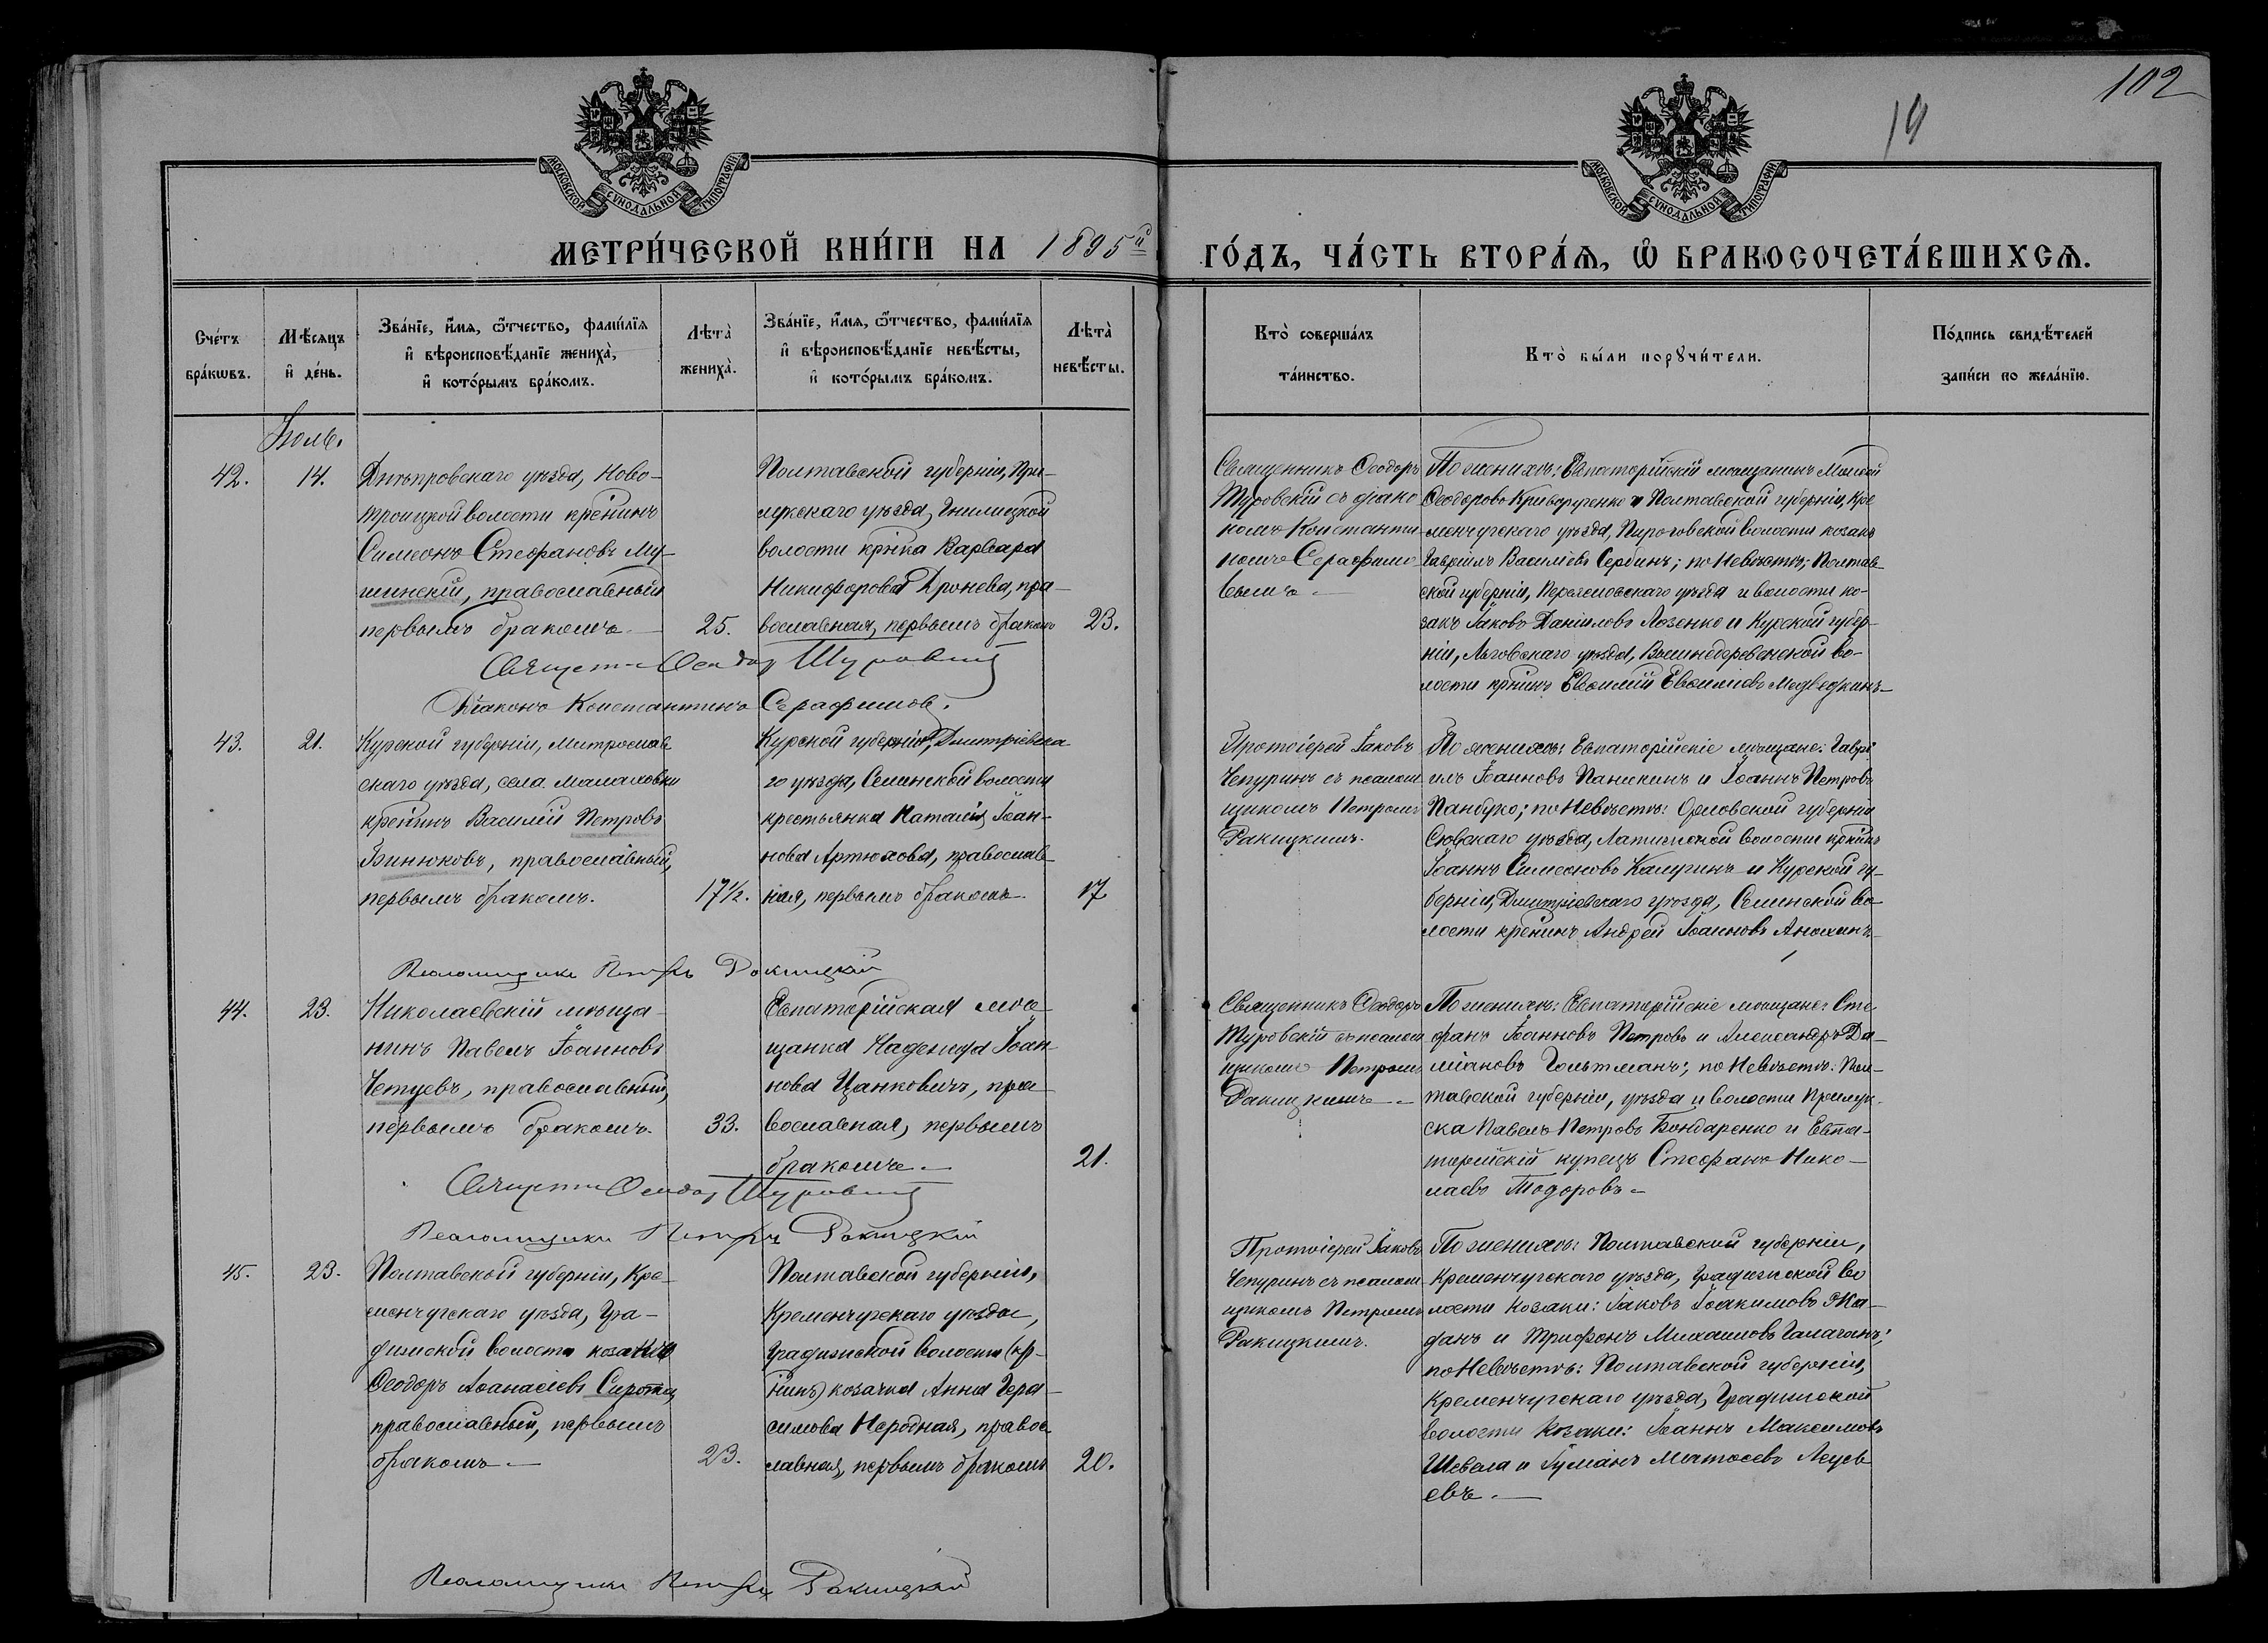 102
19
МОСКОВСКОЙ СѴНОДАЛЬНОЙ ТИПОГРАФІИ
МОСКОВСКОЙ СѴНОДАЛЬНОЙ ТИПОГРАФІИ
МЕТРИ́ЧЕСКОЙ КНИ́ГИ НА 1895й ГО́ДЪ, ЧА́СТЬ ВТОРА́Ѧ, Ѡ҆ БРАКОСОЧЕТА́ВШИХСѦ.
Сче́тъ
бра́кѡвъ.
Мѣ́сѧцъ
и҆ де́нь.
Зва́нїе, и҆́мѧ, ѻ҆́тчество, фамі́лїѧ
и҆ вѣроисповѣ́данїе жениха̀,
и҆ кото́рымъ бра́комъ.
Лѣта̀
жениха̀.
Зва́нїе, и҆́мѧ, ѻ҆́тчество, фамі́лїѧ
и҆ вѣроисповѣ́данїе невѣ́сты,
и҆ кото́рымъ бра́комъ.
Лѣта̀
невѣ́сты.
Кто̀ соверша́лъ
та́инство.
Кто̀ бы́ли порꙋчи́тели.
По́дпись свидѣ́телей
за́писи по жела́нїю.
Іюль.
42.
14.
Днѣпровскаго уѣзда, Ново-
троицкой волости крѣнинъ
Симеонъ Стефановъ Му-
шинскій, православный
первымъ бракомъ. —
25.
Полтавской губерніи, При-
лукскаго уѣзда, Гнилицкой
волости крѣнка Варвара
Никифорова Дронева, пра-
вославная, первымъ бракомъ
23.
Священникъ Ѳеодоръ
Туровскій съ діако
номъ Константи-
номъ Серафимо-
вымъ. —
По женихѣ: Евпаторійскій мѣщанинъ Моисей
Ѳеодоровъ Криворученко и Полтавской губерніи, Кре
менчугскаго уѣзда, Пироговской волости козакъ
Гавріилъ Василіевъ Сербинъ; по Невѣстѣ: Полтав-
ской губерніи, Переяславскаго уѣзда и волости ко-
закъ Іаковъ Даніиловъ Лозенко и Курской губер-
ніи, Льговскаго уѣзда, волости крѣнинъ Евѳимій Евѳиміевъ Медведкинъ
Священ. Ѳеодоръ Туровскій
Діаконъ Константинъ Серафимовъ.
43.
21.
Курской губерніи,
скаго уѣзда, села Малаховки
крѣнинъ Василій Петровъ
Зинюковъ, православный,
первымъ бракомъ.
17½.
Курской губерніи, Дмитріевска
го уѣзда, Селинской волости
крестьянка Наталія Іоан-
нова Артюхова, православ-
ная, первымъ бракомъ
17
Протоіерей Іаковъ
Чепуринъ съ псалом
щикомъ Петромъ
Ракицкимъ.
По женихѣ: Евпаторійскіе мѣщане: Гаврі
илъ Іоанновъ Панискинъ и Іоаннъ Петровъ
по Невѣстѣ: Орловской губерніи
Сѣвскаго уѣзда, волости крѣнинъ
Іоаннъ Симеоновъ Калугинъ и Курской гу-
берніи, Дмитріевскаго уѣзда, Селинской во-
лости крѣнинъ Андрей Іоанновъ Анохинъ.
Псаломщикъ Петръ Ракицкій
44.
23.
Николаевскій мѣща-
нинъ Павелъ Іоанновъ
Четуевъ, православный,
первымъ бракомъ.
33.
Евпаторійская мѣ-
щанка Надежда Іоан-
нова Цанковичъ, пра-
вославная, первымъ
бракомъ. —
21.
Священникъ Ѳеодоръ
Туровскій съ псалом
щикомъ Петромъ
Ракицкимъ. —
По женихѣ: Евпаторійскіе мѣщане: Сте
фанъ Іоанновъ Петровъ и Александръ Да-
міановъ Гольтманъ; по Невѣстѣ: Пол-
тавской губерніи, уѣзда и волости Прилук-
ска Павелъ Петровъ Бондаренко и Евпа-
торійскій купецъ Стефанъ Нико-
лаевъ Тодоровъ. —
Священ. Ѳеодоръ Туровскій
Псаломщикъ Петръ Ракицкій
45.
23.
Полтавской губерніи, Кре-
менчугскаго уѣзда, Гра-
дижской волости козакъ
Ѳеодоръ Аѳанасіевъ Сирота,
православный, первымъ
бракомъ. —
23.
Полтавской губерніи,
Кременчугскаго уѣзда,
Градижской волости (кр-
нинъ) козачка Анна Гера-
симова Неродная, правос-
лавная, первымъ бракомъ
20.
Протоіерей Іаковъ
Чепуринъ съ псалом
щикомъ Петромъ
Ракицкимъ.
По женихѣ: Полтавской губерніи,
Кременчугскаго уѣзда, Градижской во
лости козаки: Іаковъ Іоакимовъ Жа-
данъ и Трифонъ Михаиловъ Галаганъ;
по Невѣстѣ: Полтавской губерніи,
Кременчугскаго уѣзда, Градижской
волости козаки: Іоаннъ Максимовъ
Шевела и Іуліанъ Матѳеевъ
евъ. —
Псаломщикъ Петръ Ракицкій